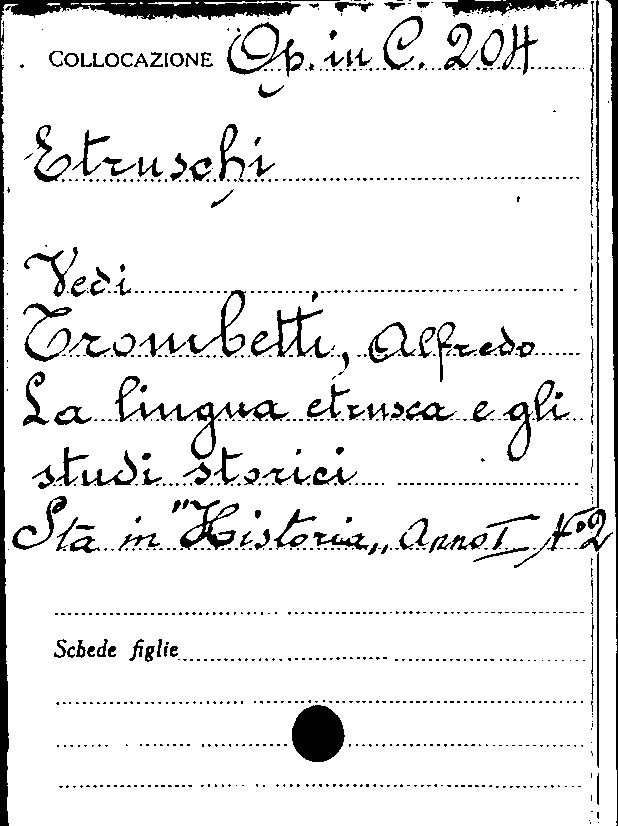 COLLOCAZIONE Op. in C. 204
Etruschi
Vedi
Trombetti, Alfredo
La lingua etrusca e gli
studi storici
Sta in "Historia„ Anno I N°2
Schede figlie